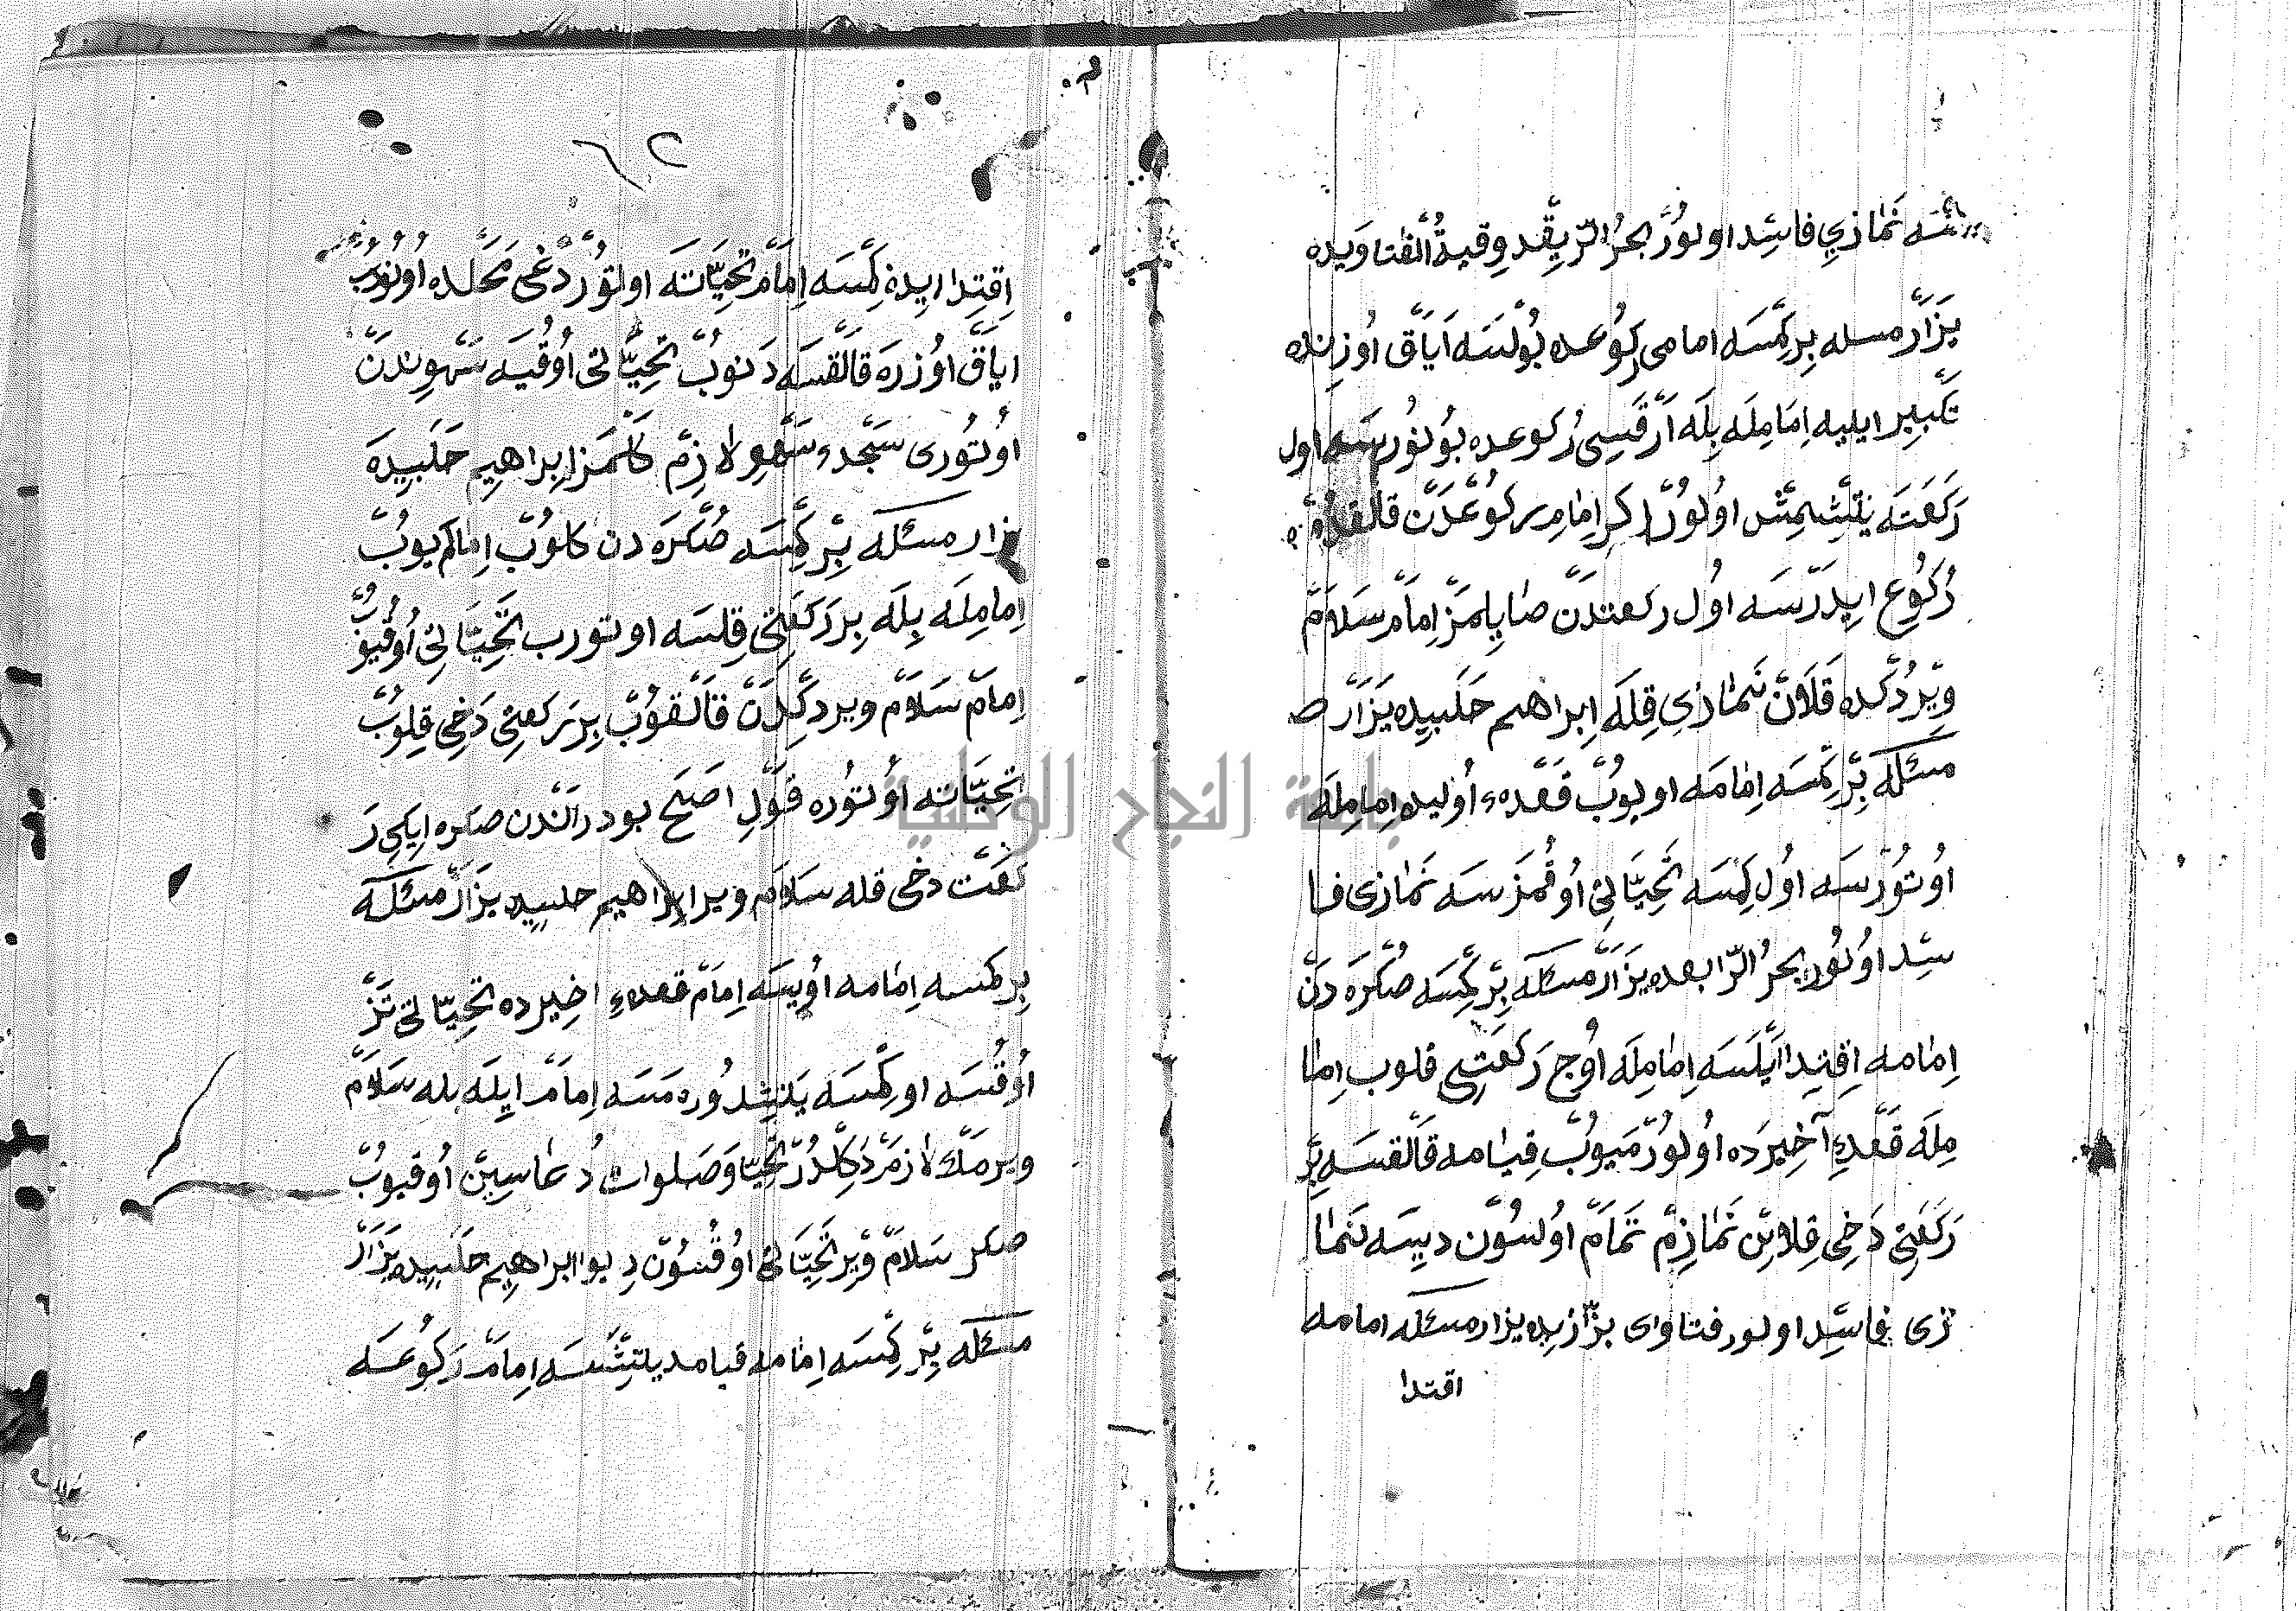 سه نَمازي فاسِد اولور بحرُ الرّيقِد وقيةُ الفتاويده
يَزَار مسله بِر كِمْسَه امامى رَكُوعده بُولْسَه اَيَاق اُوزرنده
تكبِير ايليه اِمَامِلَه بِلَه اَرْقَسِى رُكوعده بُولنُورسَه اول
رَكعَتَه يَتِشْمِش اُولُورْ اكر اِمَامِ ركُوعْدَن قالقدقدن
رُكُوع ايدَرسَه اُول ركعتدن صايلمَزْ اِمَامْ سَلاَمْ
وِيرْدُكده قَلاَن نَمَازى قِلَه اِبراهيم حَلَبيده يَزَارْ
مسئله بِرْ كِمسَه اِمَامَه اويوبْ قَعْدهء اُوليده اِمامِلَه
اوتُورْسَه اُول كِمسَه تَحِيّاتى اُوقُمَز سَه نمازى فا
سِد اوُلُور بحرُ الرّابعده يَزَارْ مسئله بِرْ كِمْسَه صُكرَه دَنْ
اِمامه اِقتِدا ايلَسَه اِمامِلَه اُوج رَكعَتى قلوب اِما
مِلَه قَعْدهءِ آخِيرَده اُولُورْمَيوُب قِيامه قَالقسَه بِرْ
رَكعَتى دَخِى قِلايِن نَمازِم تَمَامْ اولسُون ديسَه نَما
زى فاسِد اولور فتاواى بزّازيده يزار مسئله امامه
اقتدا
٦٢
اِقتِدا ايده كِمْسَه اِمَام تحِيَّاتَه اولتوُرْدُغى مَحَلده اوُتُورُبْ
اياق اوُزرَه قَالقسَه دَنوُب تَحِيَّاتى اُوقيَه سَهْوِندَن
اوُتُورى سَجْدهء سَهْو لازِم كلْمَز اِبراهيم حَلَبيدَه
يزار مسئله بِرْ كِمْسَه صُكرَه دن كلوُب اِمامَه اويوبْ
اِمامِلَه بِلَه بِر رَكعَتى قِلسَه اوتورب تَحِيّاتى اُوقيوُبْ
اِمَام سَلاَم ويردكِدَن قَالقوُب بِر ركعتى دَخِى قِلوُبْ
تحِيَّاتَه اُوتُوره قَوْلِ اصَح بودر اَنْدن صكره اِيكى رَ
كعَت دخى قله سلاَم وير ابراهيم حلبيده يَزَار مسئله
بِر كمسه اِمامه اُويسَه اِمَام قعدهءِ اخِيرده تحِيّاتى تَز
اُوقُسَه او كِمْسَه يَتِشدُورهمَسَه اِمَام ايلَه بله سَلاَم
ويرمَك لازم دَكِلْدُرْ تَحِيّا وَصَلوات دُعاسِين اُوقيوُبْ
صكر سَلاَم وِير تَحِيَّاتى اوُقُسُون دِيو ابراهيم حَلَبيده يَزَارْ
مسئله بِرْ كِمْسَه اِمامه قيامده يتِشسَه اِمام رَكُوعسَه
جامعة النجاح الوطنية